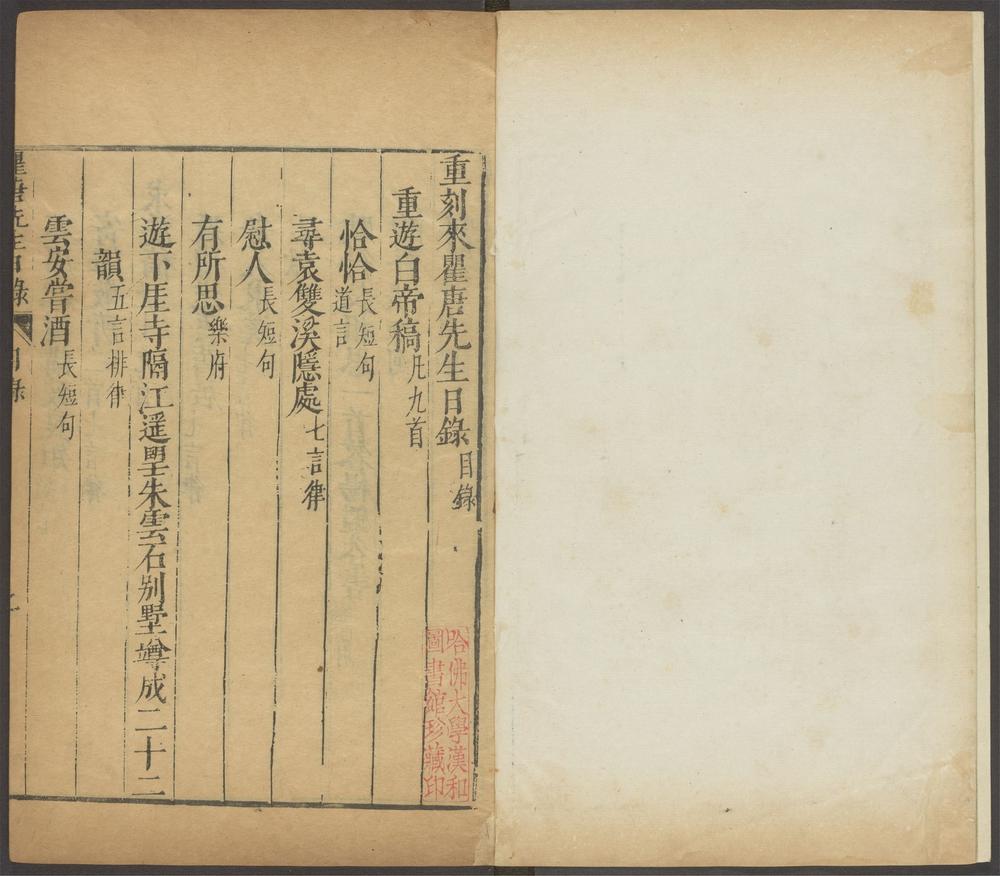 重刻來瞿唐先生日錄目錄
重遊白帝稿凡九首
恰恰長短句道言
尋袁雙溪隱處七言律
慰人長短句
有所思樂府
遊下厓寺隔江遥望朱雲石别墅
成二十二
韻五言排律
雲安嘗酒長短句
瞿唐先生日錄 目錄
哈佛大學漢和
圖書館珍藏印